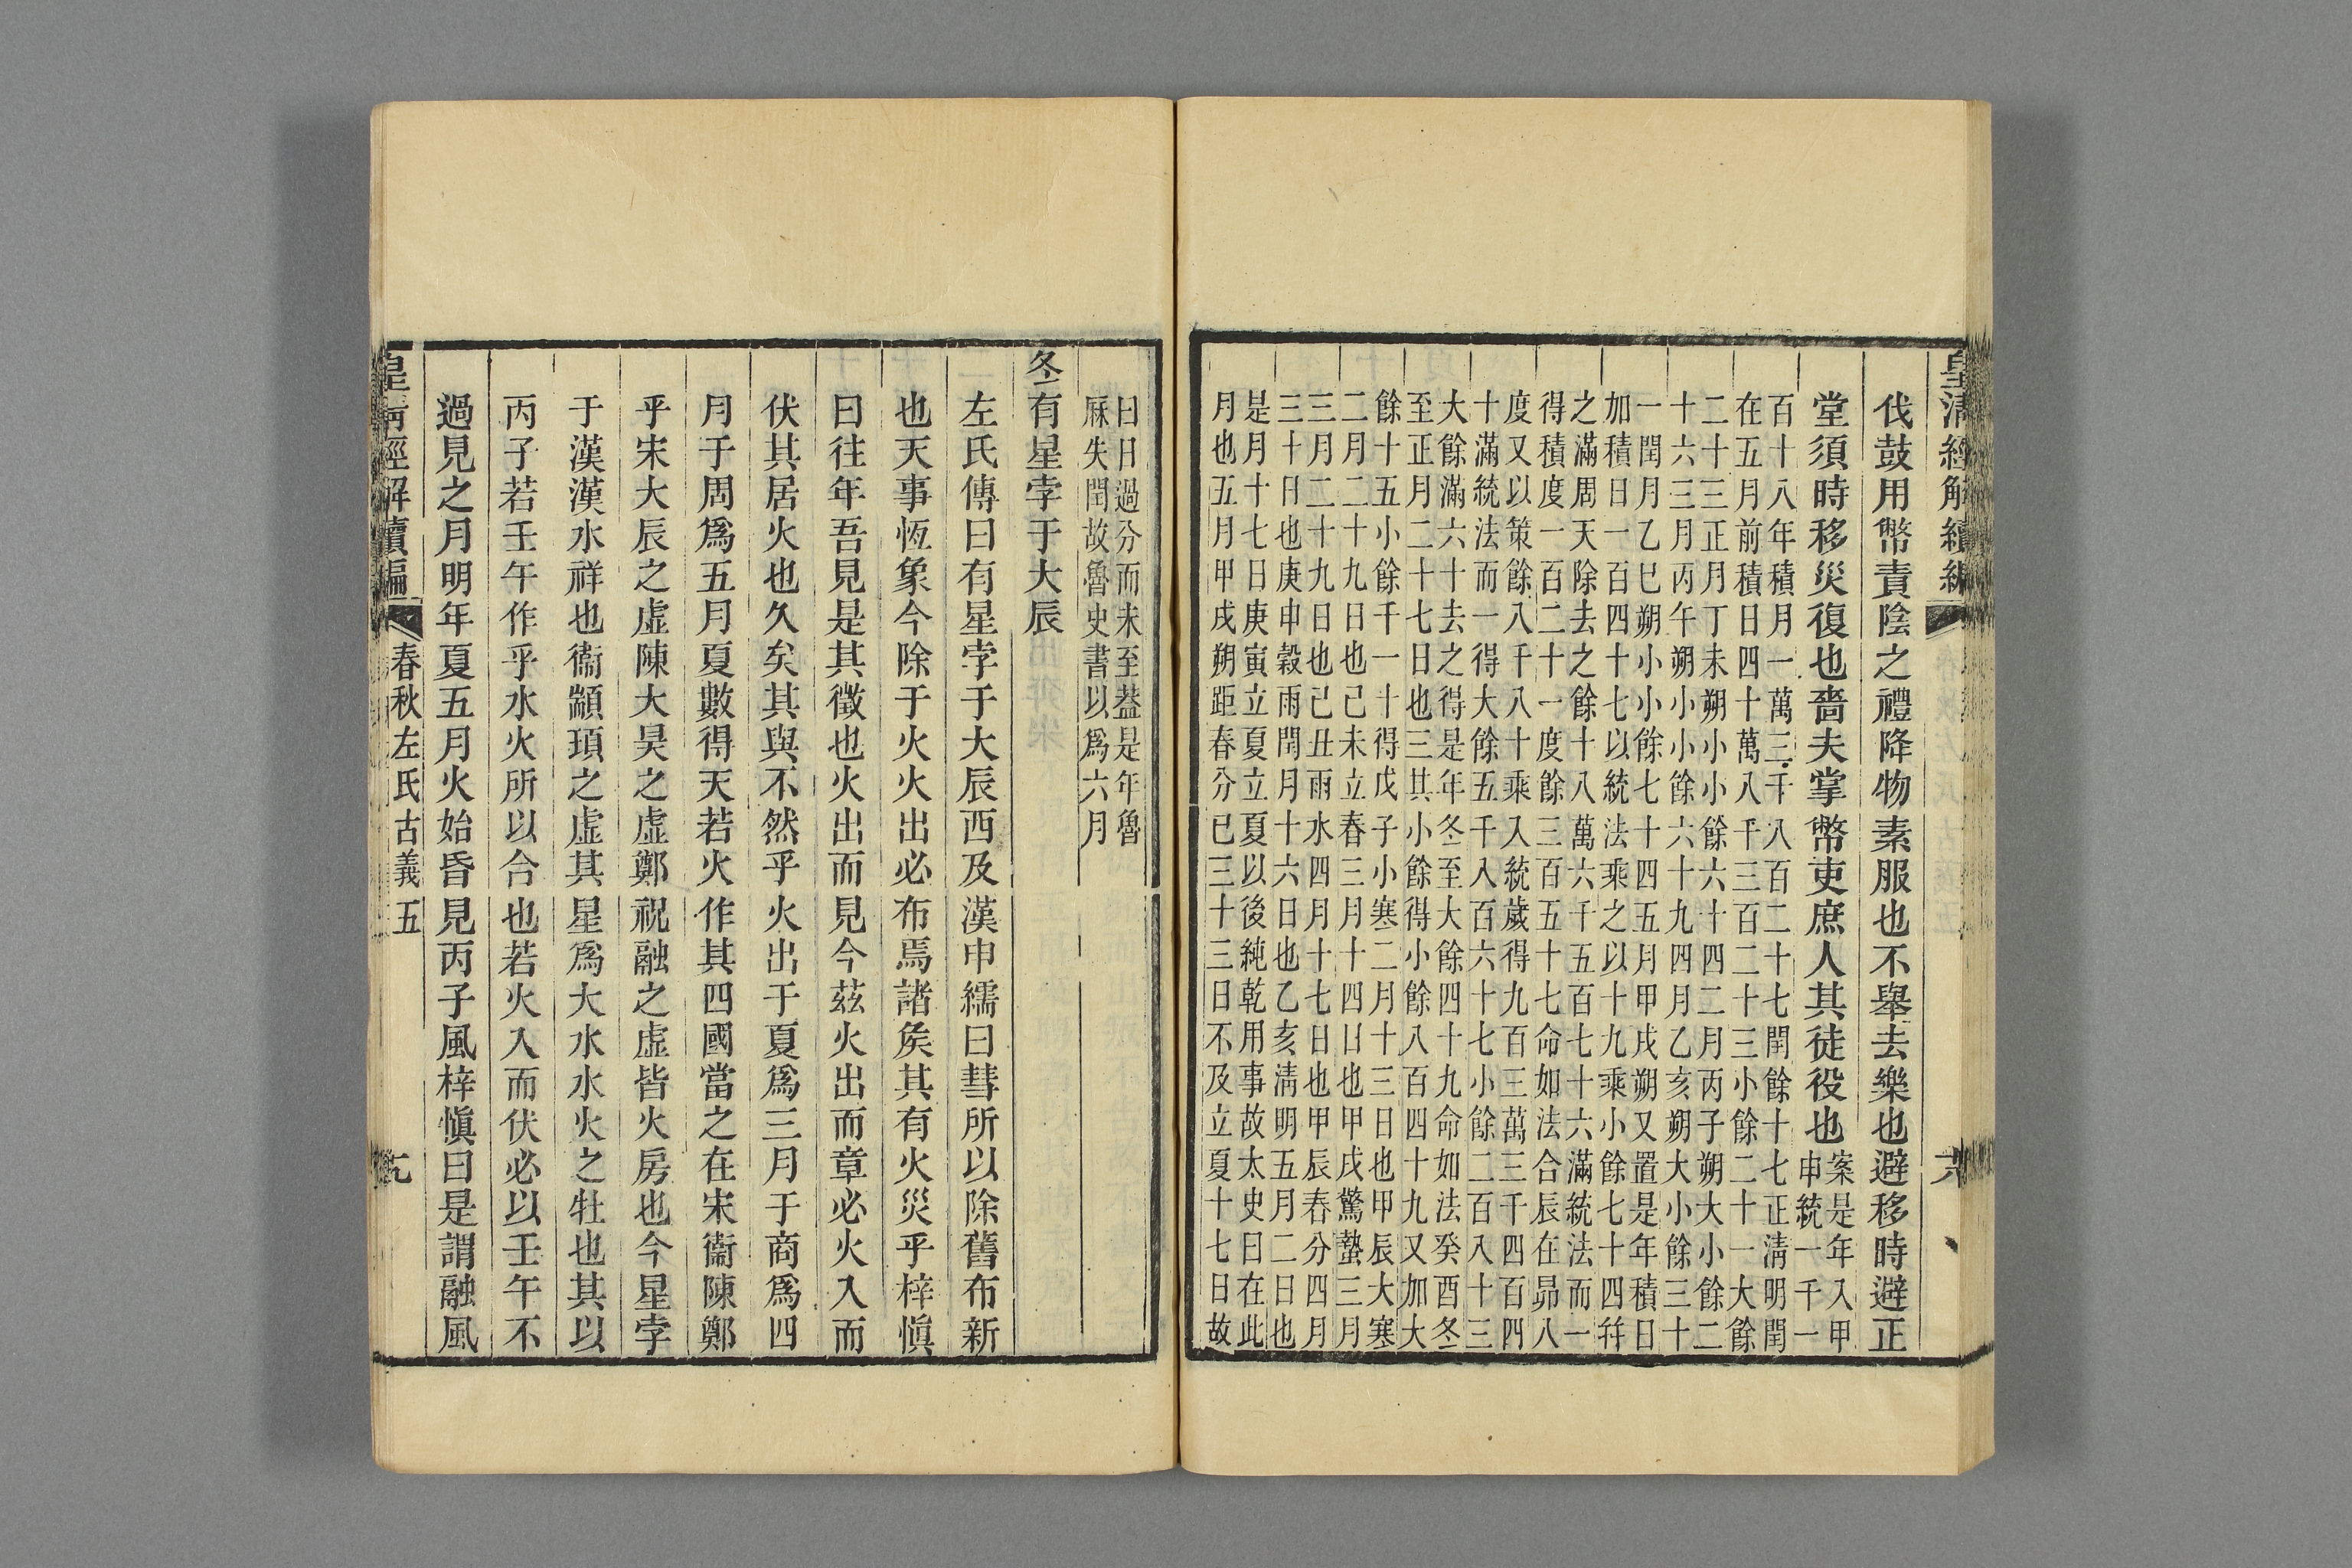 皇清經解續編
六
伐鼓用幣責陰之禮降物素服也不舉去樂也避移時避正
堂須時移災復也嗇夫掌幣吏庶人其徒役也案是年入甲
申統一千一
百十八年積月一萬三千八百二十七閏餘十七正清明閏
在五月前積日四十萬八千三百二十三小餘二十一大餘
二十三正月丁未朔小小餘六十四二月丙子朔大小餘二
十六三月丙午朔小小餘六十九四月乙亥朔大小餘三十
一閏月乙巳朔小小餘七十四五月甲戌朔又置是年積日
加積日一百四十七以統法乘之以十九乘小餘七十四并
之滿周天除去之餘十八萬六千五百七十六滿統法而一
得積度一百二十一度餘三百五十七命如法合辰在昴八
度又以策餘八千八十乘入統歲得九百三萬三千四百四
十滿統法而一得大餘五千八百六十七小餘二百八十三
大餘滿六十去之得是年冬至大餘四十九命如法癸酉冬
至正月二十七日也三其小餘得小餘八百四十九又加大
餘十五小餘千一十得戊子小寒二月十三日也甲辰大寒
二月二十九日也己未立春三月十四日也甲戌驚蟄三月
三月二十九日也己丑雨水四月十七日也甲辰春分四月
三十日也庚申穀雨閏月十六日也乙亥清明五月二日也
是月十七日庚寅立夏立夏以後純乾用事故太史曰在此
月也五月甲戌朔距春分已三十三日不及立夏十七日故
曰日過分而未至葢是年魯
厤失閏故魯史書以爲六月
冬有星孛于大辰
左氏傳曰有星孛于大辰西及漢申繻曰彗所以除舊布新
也天事恆象今除于火火出必布焉諸矦其有火災乎梓愼
曰往年吾見是其徵也火出而見今茲火出而章必火入而
伏其居火也久矣其與不然乎火出于夏爲三月于商爲四
月于周爲五月夏數得天若火作其四國當之在宋衞陳鄭
乎宋大辰之虛陳大昊之虛鄭祝融之虛皆火房也今星孛
于漢漢水祥也衞顓頊之虛其星爲大水水火之牡也其以
丙子若壬午作乎水火所以合也若火入而伏必以壬午不
過見之月明年夏五月火始昏見丙子風梓愼曰是謂融風
皇清經解續編
春秋左氏古義五